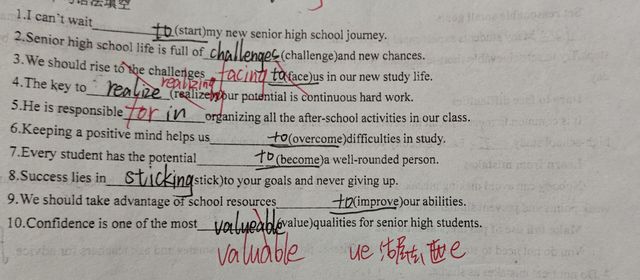 语法填空
1.I can't wait to (start)my new senior high school journey.
2.Senior high school life is full of challenges (challenge)and new chances.
3.We should rise to the challenges facing to (face)us in our new study life.
realizing
4.The key to realize (realize)our potential is continuous hard work.
5.He is responsible for in organizing all the after-school activities in our class.
6.Keeping a positive mind helps us to (overcome)difficulties in study.
7.Every student has the potential to (become)a well-rounded person.
8.Success lies in sticking (stick)to your goals and never giving up.
9.We should take advantage of school resources to (improve)our abilities.
10.Confidence is one of the most valueable (value)qualities for senior high students.
valuable ue 结尾去 e